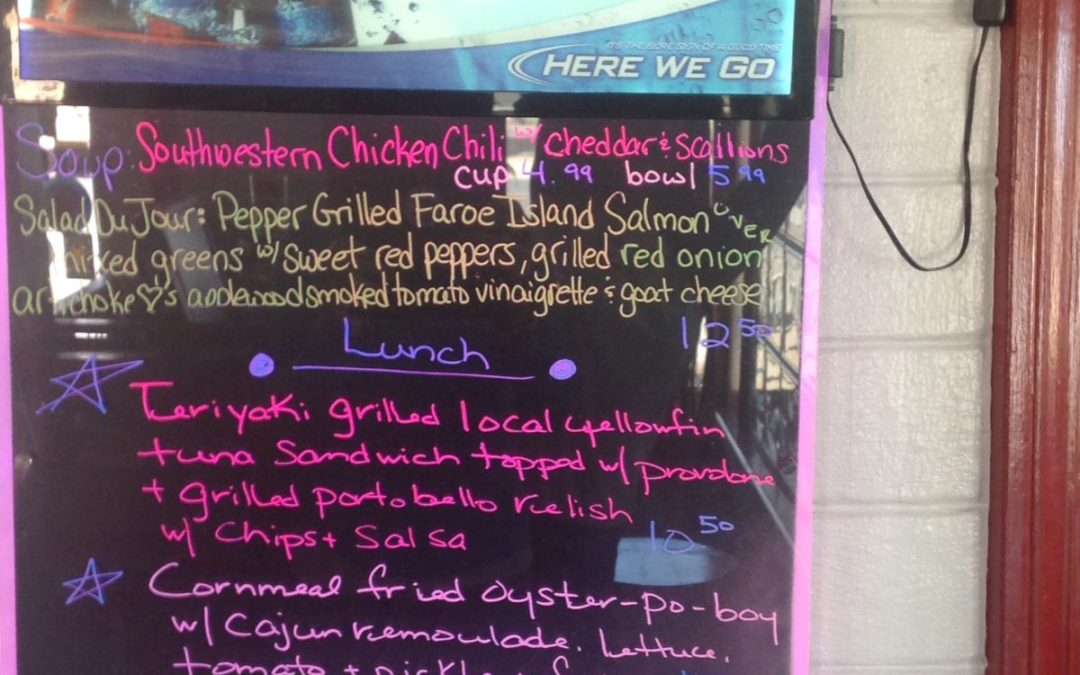 IT'S THE SURE SIGN OF A GOOD TIME
HERE WE GO
Soup: Southwestern Chicken Chili w/ cheddar & scallions
cup 4.99 bowl 5.99
Salad Du Jour: Pepper Grilled Faroe Island Salmon OVER
mixed greens w/ sweet red peppers, grilled red onion
artichoke ♡'s applewood smoked tomato vinaigrette & goat cheese
12.50
Lunch
Teriyaki grilled local yellowfin
tuna Sandwich topped w/ provolone
+ grilled portobello relish
w/ Chips + Salsa 10.50
Cornmeal fried oyster-po-boy
w/ Cajun remoulade, lettuce,
tomato + pickle